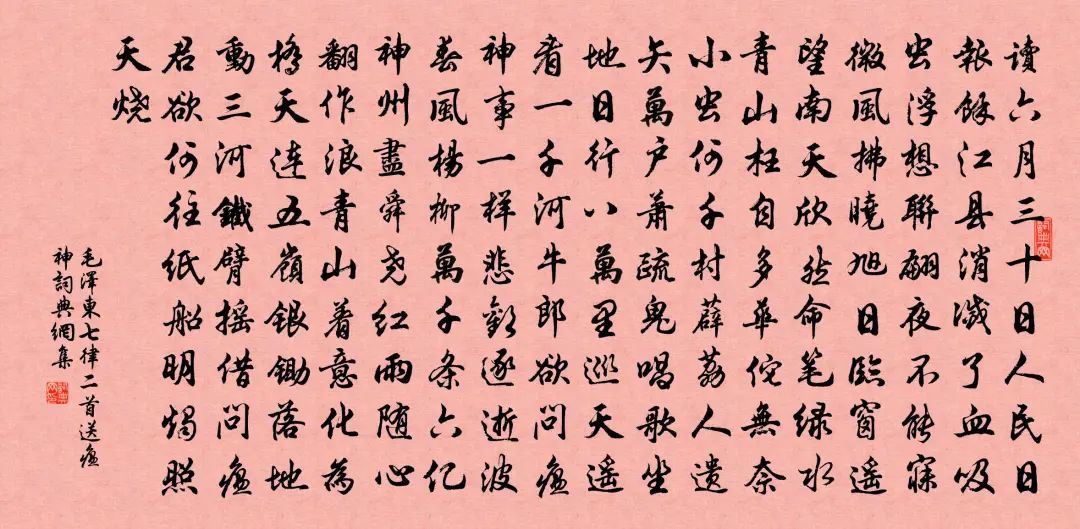 讀六月三十日人民日
報餘江县消滅了血吸
虫浮想聯翩夜不能寐
微風拂曉旭日臨窗遥
望南天欣然命笔绿水
青山枉自多華佗無奈
小虫何千村薜荔人遗
矢萬户萧疏鬼唱歌坐
地日行八萬里巡天遥
看一千河牛郎欲問瘟
神事一样悲歡逐逝波
春風楊柳萬千条六亿
神州盡舜尧红雨随心
翻作浪青山着意化為
橋天連五嶺銀鋤落地
動三河鐵臂摇借問瘟
君欲何往纸船明燭照
天烧
毛澤東七律二首送瘟
神詞典網集